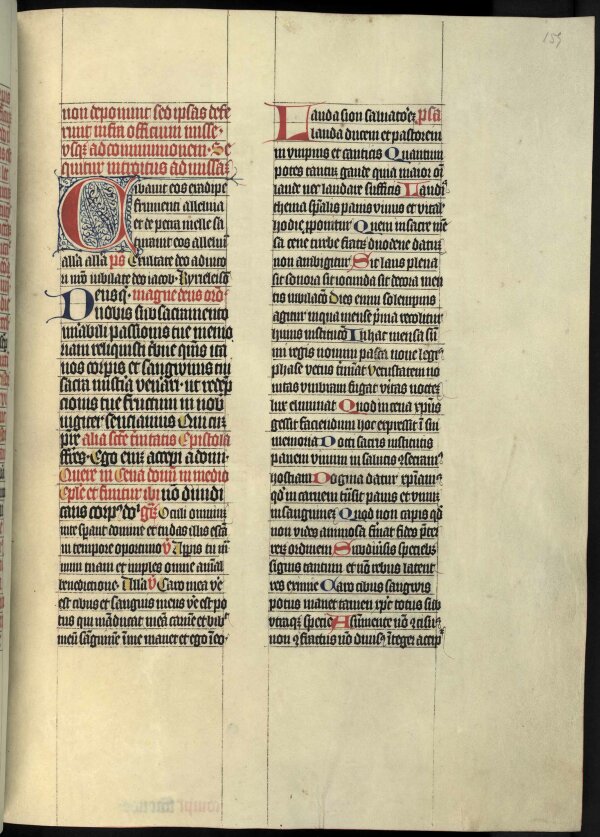 159
non deponunt sed ipsas defe
runt usque in finem officium misse
vsqz ad communionem. Se
quitur introitus ad missaz
Cibauit eos ex adipe
frumenti alleluia
et de petra melle sa
turauit eos alleluia
alla alla ps Exultate deo adiuto
ri nro iubilate deo iacob. Kyrieleiso
Deus q magne deus ord
nobis sub sacramento
mirabili passionis tue memo
riam reliquisti tbue qms ita
nos corpis et sangwinis tui
sacra mistia venerari. ut redep
cionis tue fructum in nob
iugiter senciamus Qui cu
pre alia scte trinitatis Epistola
ffres. Ego eni accepi a dom.
Quere in Cena domi in medio
Eple et finitur ibi no diiudi
cans corp do gr Oculi omniu
in te sperant domine et tu das illis esca
in tempore oportuno v Appis tu m
num tuam et imples omne aial
benedictione. Alla v Caro mea ve
est cibus et sanguis meus ve est po
tus qui manducat mea carne et bib
meu sangwine i me manet et ego i eo
Lauda sion saluatore psa
lauda ducem et pastorem
in ympnis et canticis Quantum
potes tantu gaude quia maior oi
laude nec laudare sufficis Laudis
thema spalis panis viuus et vital
hodie pponitur Quem in sacre me
sa cene turbe fratru duodene datu
non ambigitur Sit laus plena
sit sonora sit iocunda sit decora men
tis iubilaco Dies enim solempnis
agitur in qua mense pma recolitur
huius instituco In hac mensa nou
ui regis nouum pasca noue legis
phase vetus tminat Vetustatem no
uitas vmbram fugat vitas nocte
lux eliminat Quod in cena xpus
gessit faciendum hoc expressit i sui
memoria Docti sacris institutis
panem vinum in salutis csecram
hostiam Dogma datur xpianis
qd in carnem tnsit panis et vinu
in sangwinem Quod non capis qd
non vides animosa firmat fides pter
rerz ordinem Sub diuisis speciebs
signis tantum et no rebus latent
res eximie Caro cibus sangwis
potus manet tamen xpc totus sub
vtraqz specie A sumente no cisus
non cfractus no diuisus iteger accip